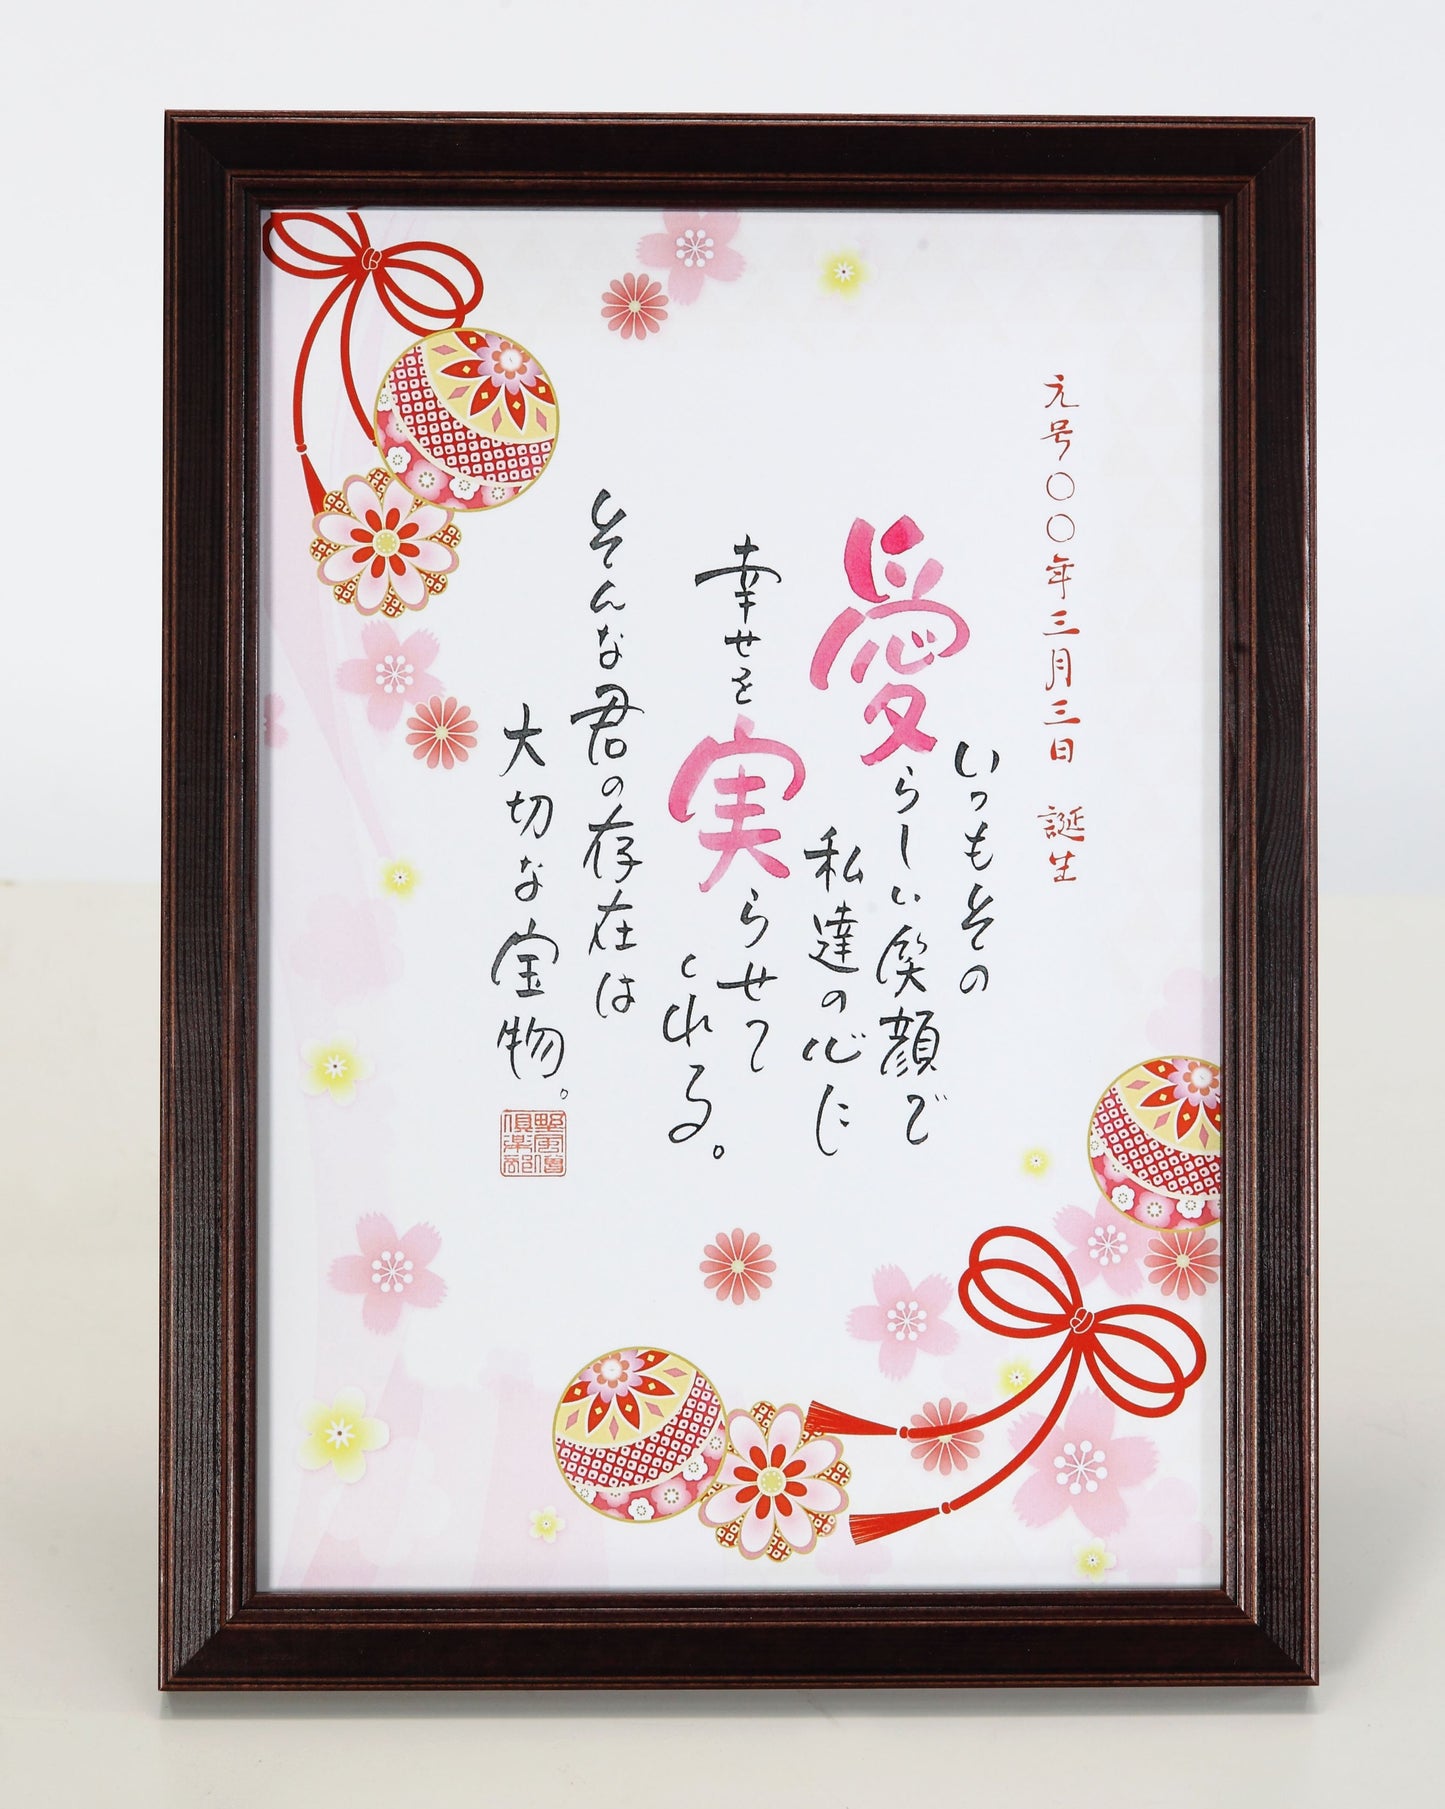 元号〇〇年三月三日 誕生
いつもその
愛らしい笑顔で
私達の心に
幸せを実らせて
くれる。
そんな君の存在は
大切な宝物。